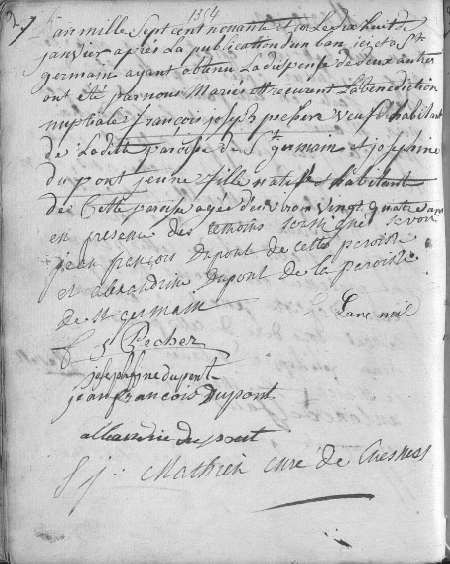 27
1354
L'an mille Sept cent nonante et un Le dix huit de
janvier après La publication d'un ban ici et à St
germain ayant obtenu La dispense de deux autres
ont été par nous Mariés et recurent La bénédiction
nuptiale françois joseph pecher veuf et habitant
de Laditte paroisse de St germain et josephine
du pont jeune fille natif et habitant
de Cette paroise agée d'environ vingt quatre ans
en presence des temoins soussigné scavoir
jean françois dupont de cette paroisse
et alexandrine dupont de la paroisse
de St germain
f j Pecher
josephine dupont
jean francois Dupont
allexandrine du pont
j. Mathieu curé de